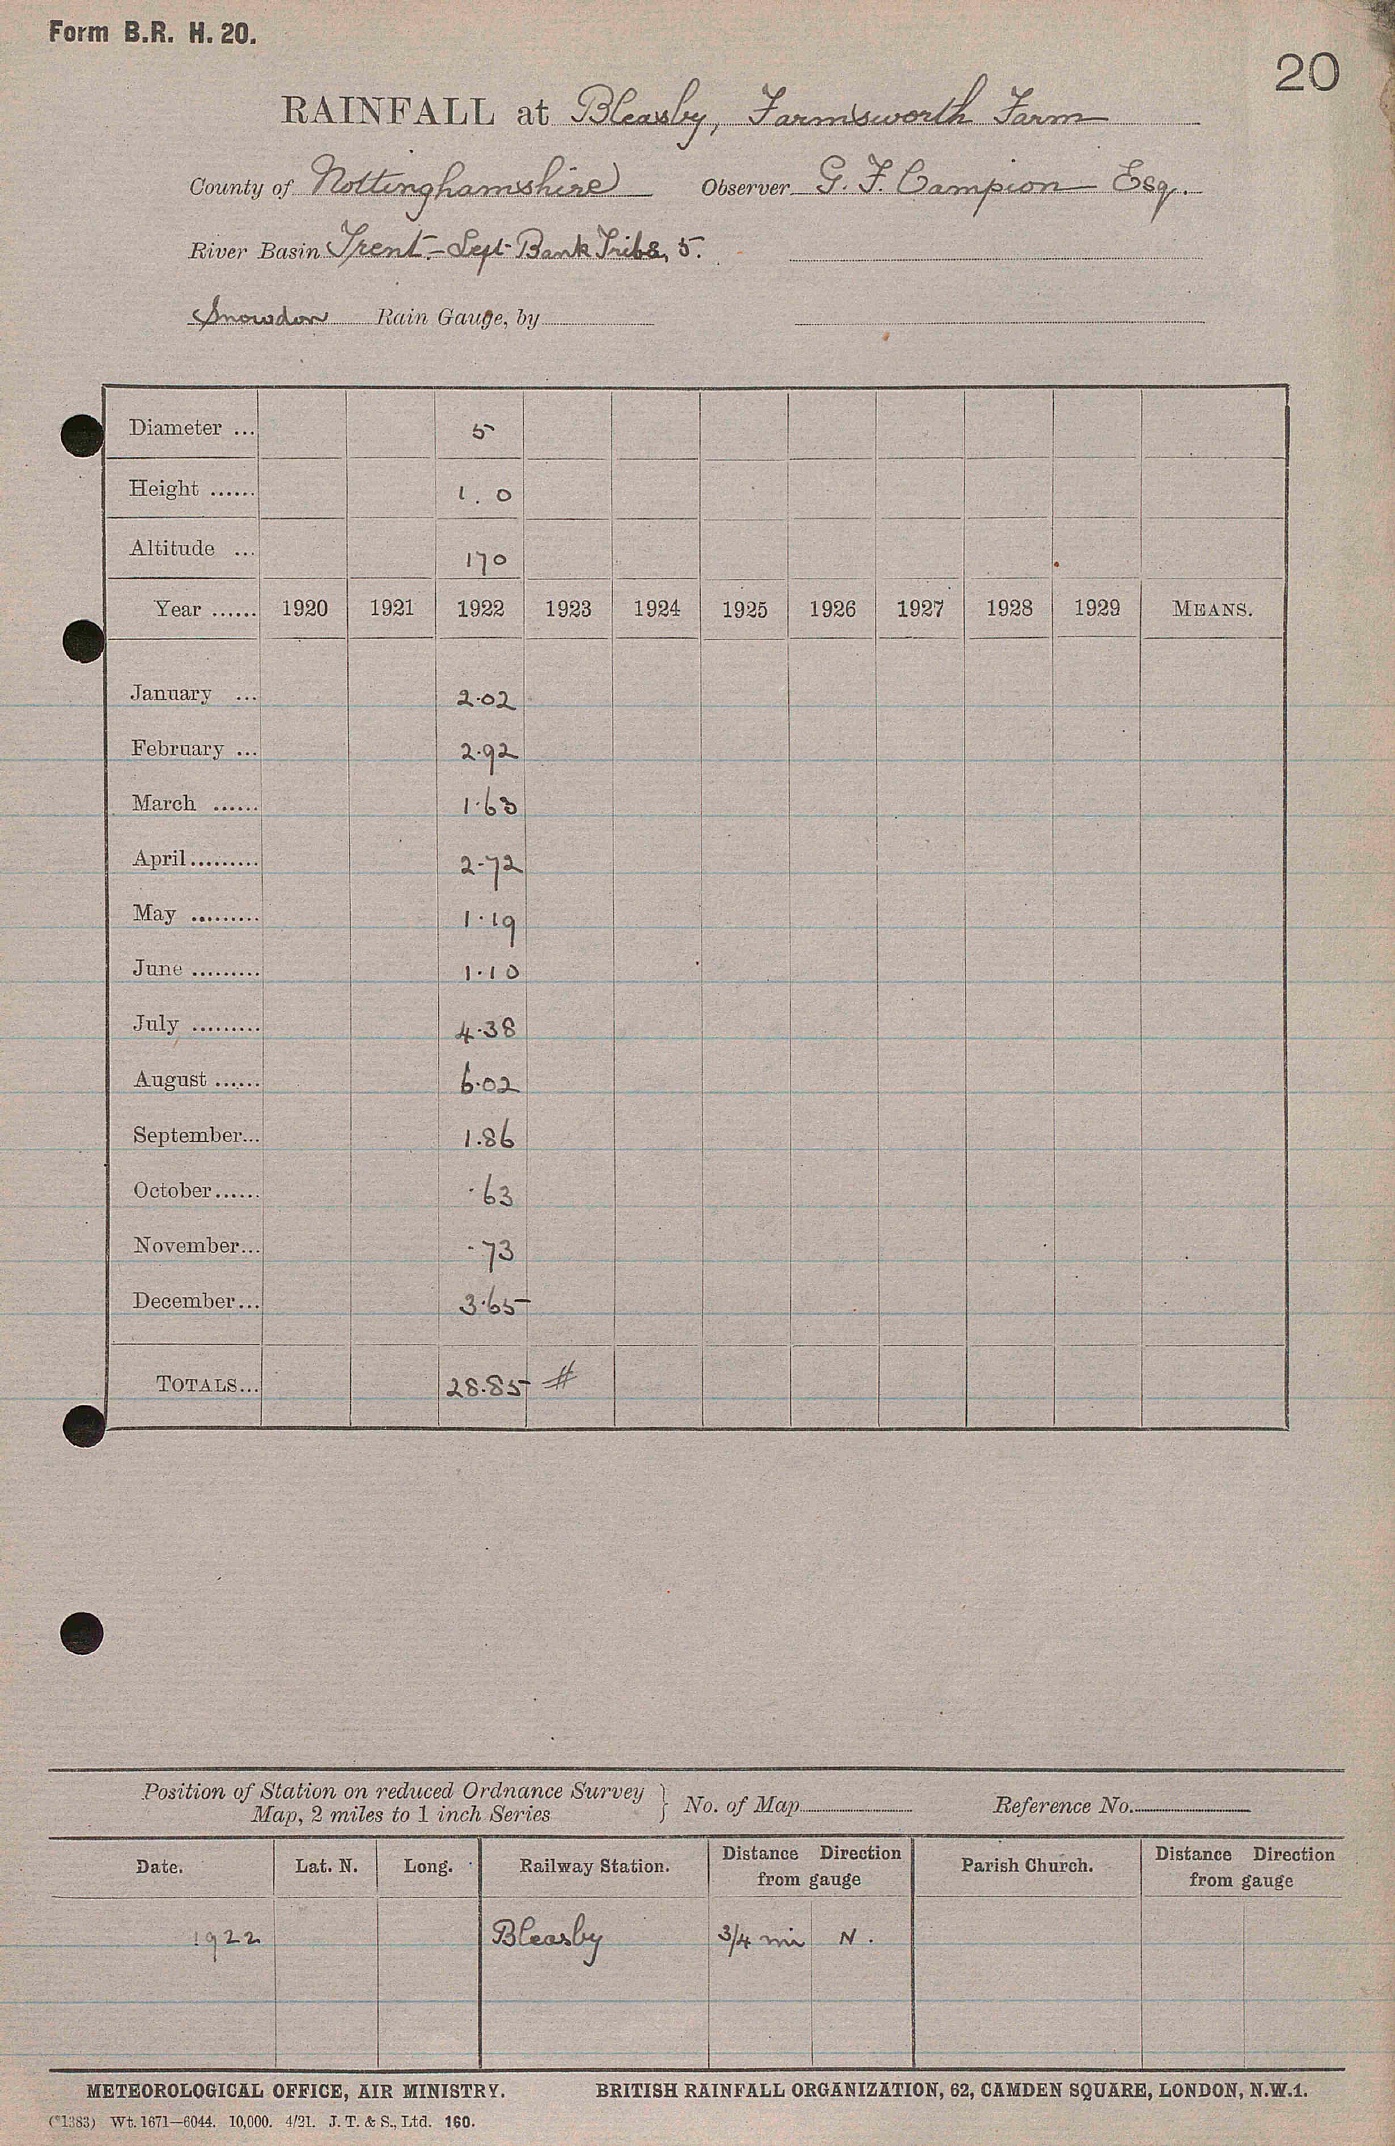 Form B.R. H. 20.
20
RAINFALL at Bleasby, Farmsworth Farm
County of Nottinghamshire Observer G. F. Campion Esq.
River Basin Trent - Left Bank Tribs, 5.
Snowdon Rain Gauge, by
Diameter ... 5
Height ...... 1. 0
Altitude ... 170
Year ...... 1920 1921 1922 1923 1924 1925 1926 1927 1928 1929 MEANS.
January ... 2.02
February ... 2.92
March ...... 1.63
April......... 2.72
May ......... 1.19
June ......... 1.10
July ......... 4.38
August ...... 6.02
September... 1.86
October...... .63
November... .73
December... 3.65
TOTALS... 28.85 #
Position of Station on reduced Ordnance Survey
Map, 2 miles to 1 inch Series } No. of Map Reference No.
Date. Lat. N. Long. Railway Station. Distance Direction from gauge Parish Church. Distance Direction from gauge
1922 Bleasby 3/4 mi N.
METEOROLOGICAL OFFICE, AIR MINISTRY. BRITISH RAINFALL ORGANIZATION, 62, CAMDEN SQUARE, LONDON, N.W.1.
(*1383) Wt. 1671—6044. 10,000. 4/21. J. T. & S., Ltd. 160.